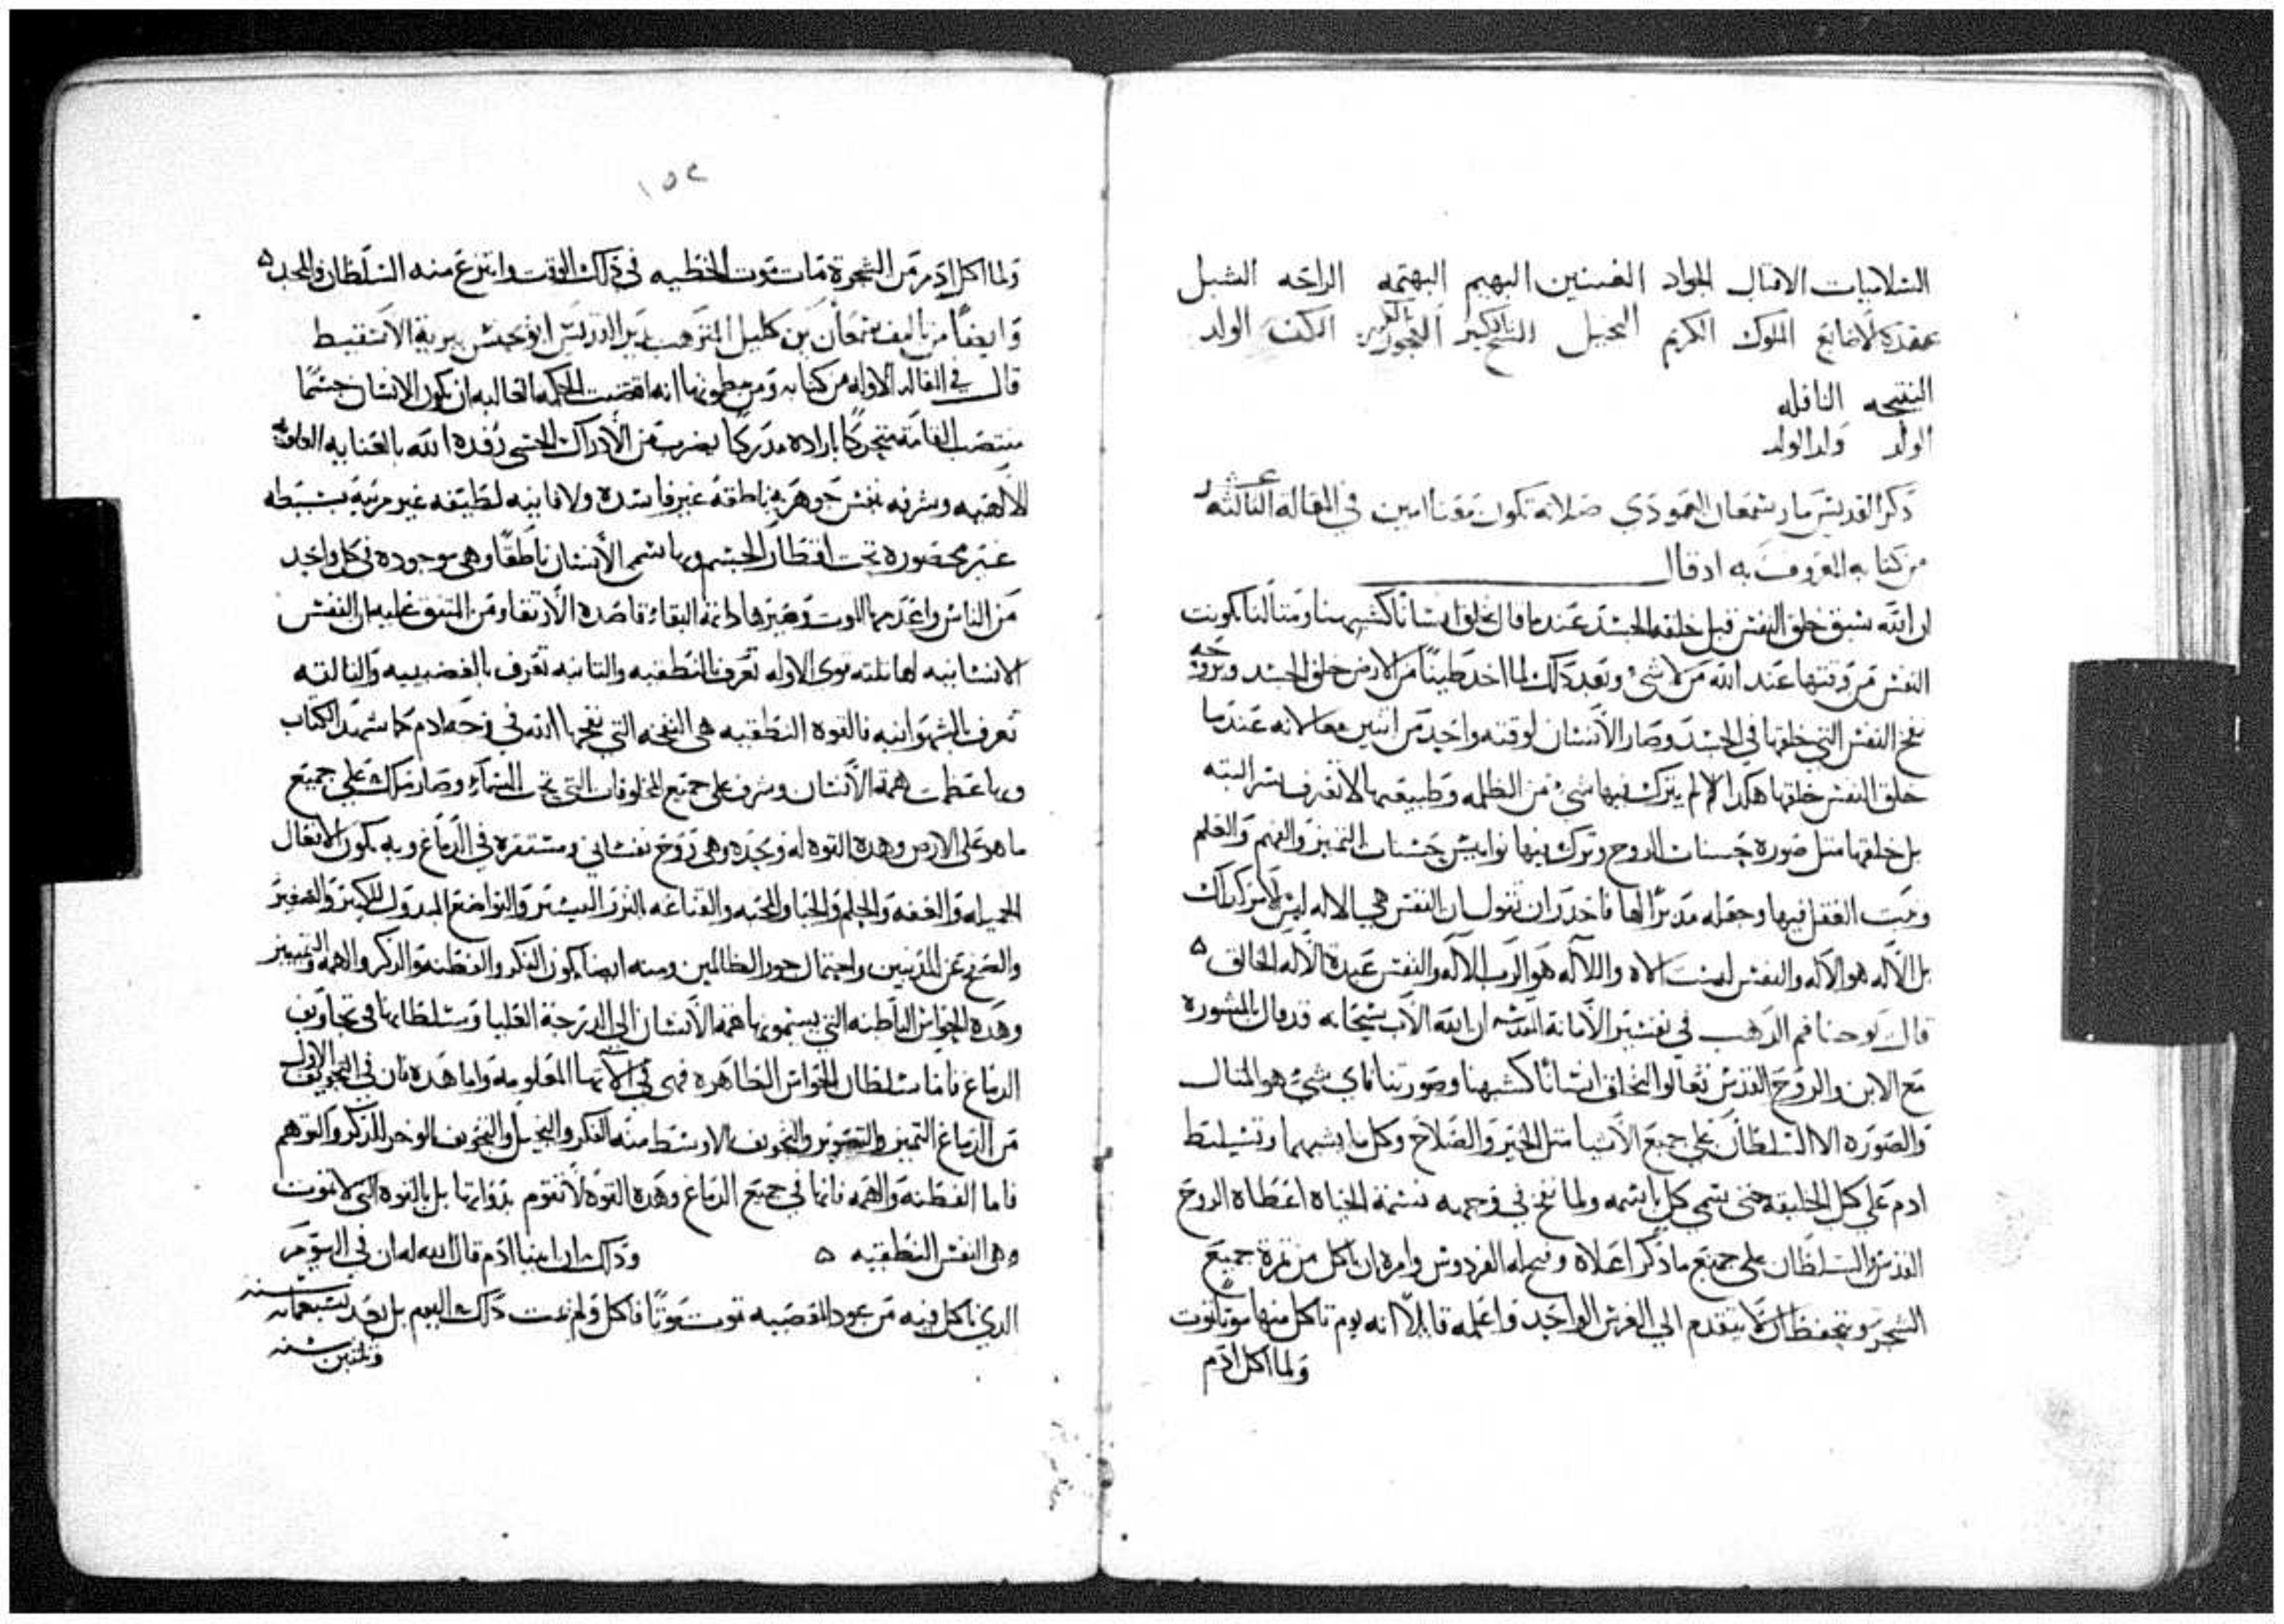 الشلاتيات الاقتاب الجواد الغسنين البهيم البهتمه الراحه الشبل
عقدة لاصابع الملوك الكريم البخيل الشيخ الكبير العجوز الكبيره الكنف الولد
النتيجه النافله
الولد ولد الولد
ذكر القديس مار سمعان العمودي صلاته تكون معنا امين في المقالة الثالثه عشر
من كتابه المعروف به اذ قال
ان الله سبق خلق النفس قبل خلقه الجسد عندما قال نخلق انسانا كشبهنا ومثالنا كونت
النفس من وقتها عند الله من لا شي وبعد ذلك لما اخد طينا من الارض خلق الجسد وبروحه
نفخ النفس التي خلقها في الجسد وصار الانسان لوقته واحد من اثنين معا لانه عندما
خلق النفس خلقها هكدا لم يترك فيها شي من الظلمه وطبيعتها لا تعرف شر البته
بل خلقها مثل صورة حسنات الروح وترك فيها نواميس حسنات التميز والفهم والعلم
وتبت العقل فيها وجعله مدبرا لها فاحدر ان تقول ان النفس هي الاله ليس الامر كداك
بل الاله هو الاله والنفس ليست الاه والاله هو الرب الاله والنفس عبدة الاله الخالق ۵
قال يوحنا فم الدهب في تفسير الامانة المقدسه ان الله الاب سبحانه قد قال بالمشورة
مع الابن والروح القدس تعالوا نخلق انسانا كشبهنا وصورتنا فاي شي هو المثال
والصورة الا السلطان على جميع الاشيا مثل الخير والصلاح وكل ما يشبهها وتسليط
ادم على كل الخليقه حتى سمى كل باسمه ولما نفخ في وجهه نسمة الحياه اعطاه الروح
القدس السلطان على جميع ما ذكر اعلاه وسلمه الفردوس وامره ان ياكل من تمرة جميع
الشجر ويتحفظ ان لا يتقدم الى الغرس الواحد واعلمه قايلا انه يوم تاكل منها موتا تموت
ولما اكل ادم
١٥٢
ولما اكل ادم من الشجرة مات بموت الخطيه في ذلك الوقت وانتزع منه السلطان والمجد ۵
وايضا من تاليف سمعان بن كليل المترهب بدير القديس ابو يحنس ببرية الاسقيط
قال في المقاله الاوله من كتابه ومن مضمونها انه اقتضت الحكمه العاليه ان يكون الانسان جسما
منتصب القامة متحركا بارادة مدركا بضرب من الادراك الحسي رفده الله بالعنايه
الالاهيه وشرفه بنفس جوهرية ناطقة غير فاسدة ولا فانيه لطيفه غير مرتبة بسيطه
غير محصوره تحت اقطار الجسم وبها سمى الانسان ناطقا وهي موجوده في كل واحد
من الناس واعدمها الموت وصيرها دايمة البقاء قاصده الارتقا ومن المتفق عليه ان النفس
الانسانيه لها تلته قوى الاوله تعرف بالنطقيه والتانيه تعرف بالغضبيه والتالته
تعرف بالشهوانيه فالقوه النطقيه هي النفخه التي نفخها الله في وجه ادم كما شهد الكتاب
وبها عظمت همة الانسان وشرف على جميع المخلوقات التي تحت السماء وصار ملك على جميع
ما هو على الارض وهده القوه له وحده وهي روح نفساني ومستقره في الدماغ وبه تكون الافعال
الجميله والعفه والحلم والحيا والمحبه والقناعه النزر اليسير والتواضع المبدول للكبير والصغير
والصفح عن المدنبين واحتمال جور الظالمين ومنه ايضا يكون الفكر والفطنة والذكر والهمه والتمييز
وهذه الحواس الباطنه التي يسمو بها همة الانسان الى الدرجة العليا وسلطانها في تجاويف
الدماغ فاما سلطان الحواس الظاهره فهي في الآتها المعلومه واما هده فان في التجويف الاول
من الدماغ التميز والتصوير والتجويف الاوسط منه الفكر والتخيل والتجويف الموخر للذكر والتوهم
فاما الفطنة والهمه فانها في جميع الدماغ وهده القوه لا تقوم بدواتها بل بالقوه التي لا تموت
وهى النفس النطقيه ۵ وذلك ان ابينا ادم قال الله له ان في اليوم
الدي تاكل فيه من عود المعصيه تموت موتا فاكل ولم يمت ذلك اليوم بل بعد تسعمايه سنه
وثلثين سنه